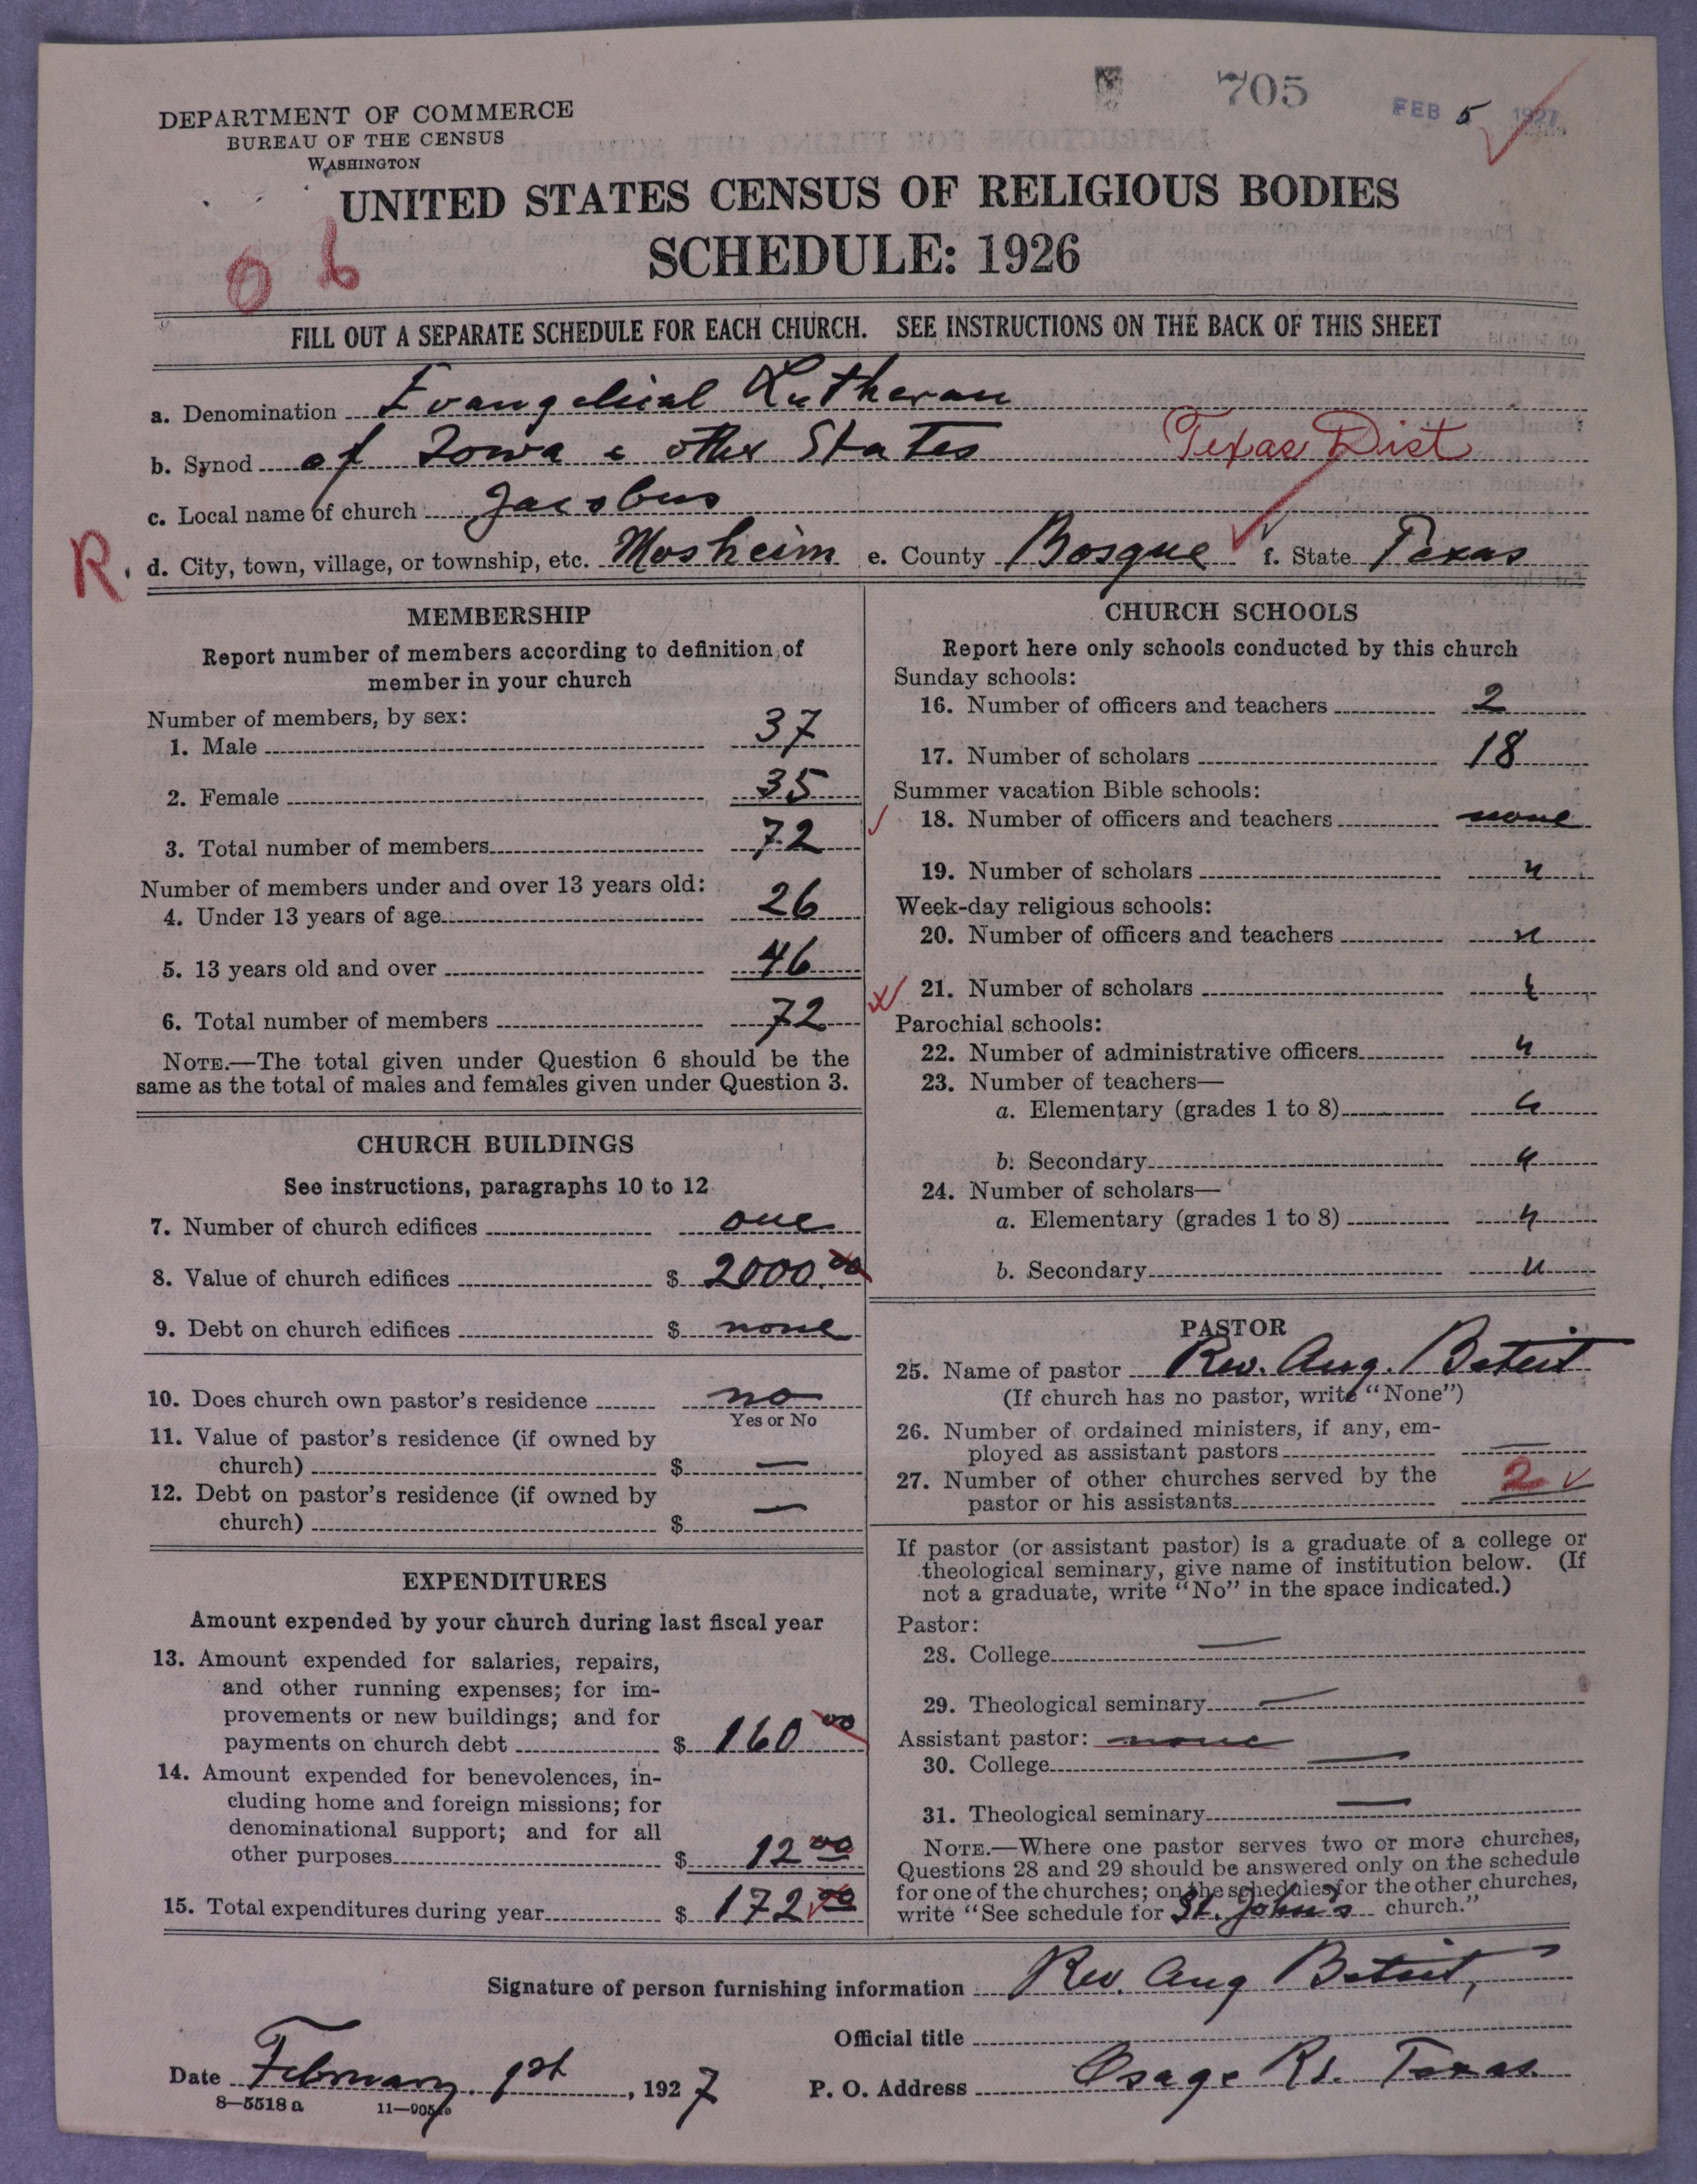 705
FEB 5 1927
DEPARTMENT OF COMMERCE
BUREAU OF THE CENSUS
WASHINGTON
UNITED STATES CENSUS OF RELIGIOUS BODIES
SCHEDULE: 1926
FILL OUT A SEPARATE SCHEDULE FOR EACH CHURCH. SEE INSTRUCTIONS ON THE BACK OF THIS SHEET
a. Denomination Evangelical Lutheran
b. Synod of Iowa & other States Texas Dist
c. Local name of church Jacobus
R. d. City, town, village, or township, etc. Mosheim e. County Bosque f. State Texas
MEMBERSHIP
Report number of members according to definition of
member in your church
Number of members, by sex:
1. Male 37
2. Female 35
3. Total number of members 72
Number of members under and over 13 years old:
4. Under 13 years of age 26
5. 13 years old and over 46
6. Total number of members 72
NOTE.—The total given under Question 6 should be the
same as the total of males and females given under Question 3.
CHURCH BUILDINGS
See instructions, paragraphs 10 to 12
7. Number of church edifices one
8. Value of church edifices $ 2000.00
9. Debt on church edifices $ none
10. Does church own pastor's residence no
Yes or No
11. Value of pastor's residence (if owned by
church) $ —
12. Debt on pastor's residence (if owned by
church) $ —
EXPENDITURES
Amount expended by your church during last fiscal year
13. Amount expended for salaries, repairs,
and other running expenses; for im-
provements or new buildings; and for
payments on church debt $ 160 00
14. Amount expended for benevolences, in-
cluding home and foreign missions; for
denominational support; and for all
other purposes $ 12 00
15. Total expenditures during year $ 172 00
CHURCH SCHOOLS
Report here only schools conducted by this church
Sunday schools:
16. Number of officers and teachers 2
17. Number of scholars 18
Summer vacation Bible schools:
18. Number of officers and teachers none
19. Number of scholars "
Week-day religious schools:
20. Number of officers and teachers "
21. Number of scholars "
Parochial schools:
22. Number of administrative officers "
23. Number of teachers—
a. Elementary (grades 1 to 8) "
b. Secondary "
24. Number of scholars—
a. Elementary (grades 1 to 8) "
b. Secondary "
PASTOR
25. Name of pastor Rev. Aug.
(If church has no pastor, write "None")
26. Number of ordained ministers, if any, em-
ployed as assistant pastors —
27. Number of other churches served by the
pastor or his assistants 2
If pastor (or assistant pastor) is a graduate of a college or
theological seminary, give name of institution below. (If
not a graduate, write "No" in the space indicated.)
Pastor:
28. College —
29. Theological seminary —
Assistant pastor: none
30. College —
31. Theological seminary —
NOTE.—Where one pastor serves two or more churches,
Questions 28 and 29 should be answered only on the schedule
for one of the churches; on the schedules for the other churches,
write "See schedule for St. John's church."
Signature of person furnishing information Rev. Aug
Official title
Date February 1st, 1927 P. O. Address Osage Texas
8—5518 a